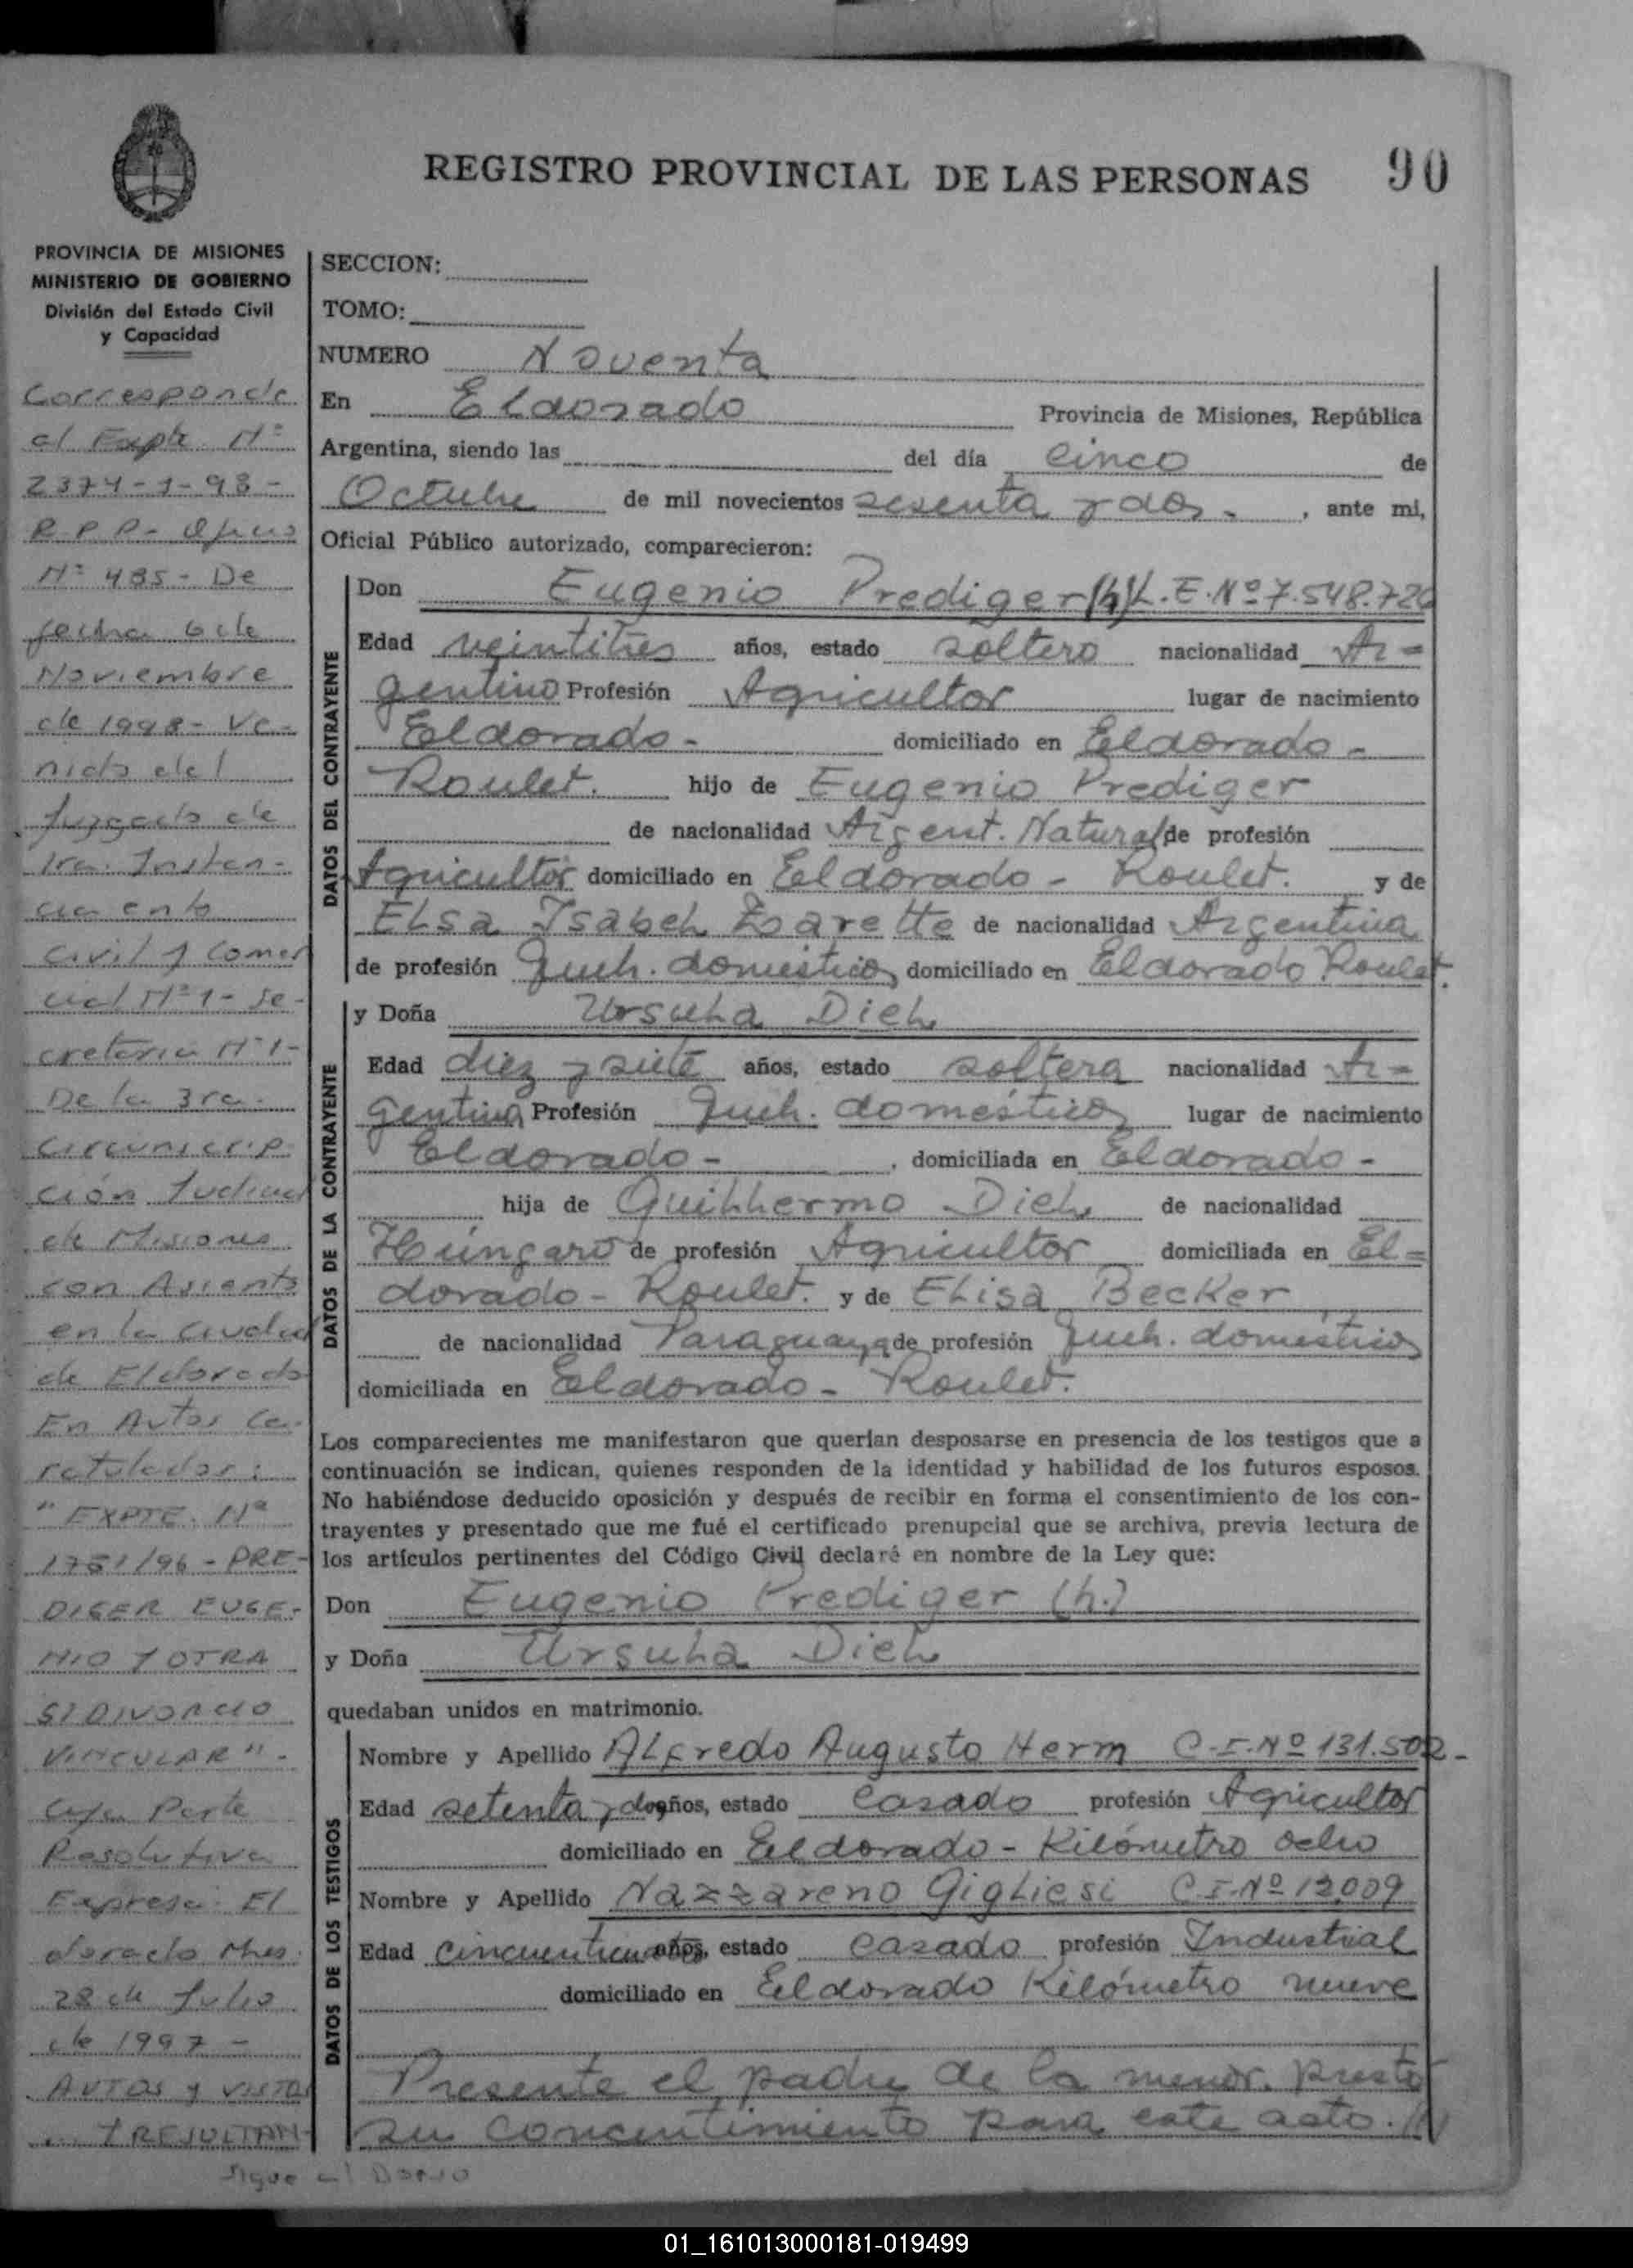 REGISTRO PROVINCIAL DE LAS PERSONAS 90
PROVINCIA DE MISIONES
MINISTERIO DE GOBIERNO
División del Estado Civil
y Capacidad
Corresponde
al Expte Nº
2374-1-98-
R.P.P- Oficio
Nº 485- De
fecha 6 de
Noviembre
de 1998- Ve-
nido del
Juzgado de
1ra. Instan-
cia en lo
Civil y Comer
cial Nº 1- Se-
cretaria Nº 1-
De la 3ra.
Circunscrip
ción Judicial
de Misiones
con Asiento
en la Ciudad
de Eldorado
En Autos Ca-
ratulados:
"EXPTE. Nº
1751/96-PRE-
DIGER EUGE-
NIO Y OTRA
S/DIVORCIO
VINCULAR"-
Cuya Parte
Resolutiva
Expresa: El
dorado Mnes.
28 de Julio
de 1997-
AUTOS y VISTOS
Y RESULTAN-
Sigue al Dorso
SECCION:
TOMO:
NUMERO Noventa
En Eldorado Provincia de Misiones, República
Argentina, siendo las del día cinco de
Octubre de mil novecientos sesenta y dos-, ante mi,
Oficial Público autorizado, comparecieron:
DATOS DEL CONTRAYENTE
Don Eugenio Prediger (h) L.E.Nº 7.548.726
Edad veintitres años, estado soltero nacionalidad Ar=
gentino Profesión Agricultor lugar de nacimiento
Eldorado- domiciliado en Eldorado-
Roulet. hijo de Eugenio Prediger
de nacionalidad Argent. Natural de profesión
Agricultor domiciliado en Eldorado- Roulet. y de
Elsa Isabel Zarette de nacionalidad Argentina
de profesión Queh. domésticos domiciliado en Eldorado Roulet.
DATOS DE LA CONTRAYENTE
y Doña Ursula Diel
Edad diez y siete años, estado soltera nacionalidad Ar=
gentina Profesión Queh. domésticos lugar de nacimiento
Eldorado-, domiciliada en Eldorado-
hija de Guillermo Diel de nacionalidad
Húngaro de profesión Agricultor domiciliada en El=
dorado- Roulet. y de Elisa Becker
de nacionalidad Paraguaya de profesión Queh. domésticos
domiciliada en Eldorado- Roulet.
Los comparecientes me manifestaron que querían desposarse en presencia de los testigos que a
continuación se indican, quienes responden de la identidad y habilidad de los futuros esposos.
No habiéndose deducido oposición y después de recibir en forma el consentimiento de los con-
trayentes y presentado que me fué el certificado prenupcial que se archiva, previa lectura de
los artículos pertinentes del Código Civil declaré en nombre de la Ley que:
Don Eugenio Prediger (h.)
y Doña Ursula Diel
quedaban unidos en matrimonio.
DATOS DE LOS TESTIGOS
Nombre y Apellido Alfredo Augusto Herm C.I.Nº 131.502-
Edad setenta y dos años, estado casado profesión Agricultor
domiciliado en Eldorado- Kilómetro ocho
Nombre y Apellido Nazzareno Gigliesi C.I.Nº 12.009
Edad años, estado casado profesión Industrial
domiciliado en Eldorado Kilómetro nueve
Presente el padre de la menor, presta
su concentimiento para este acto.
01_161013000181-019499